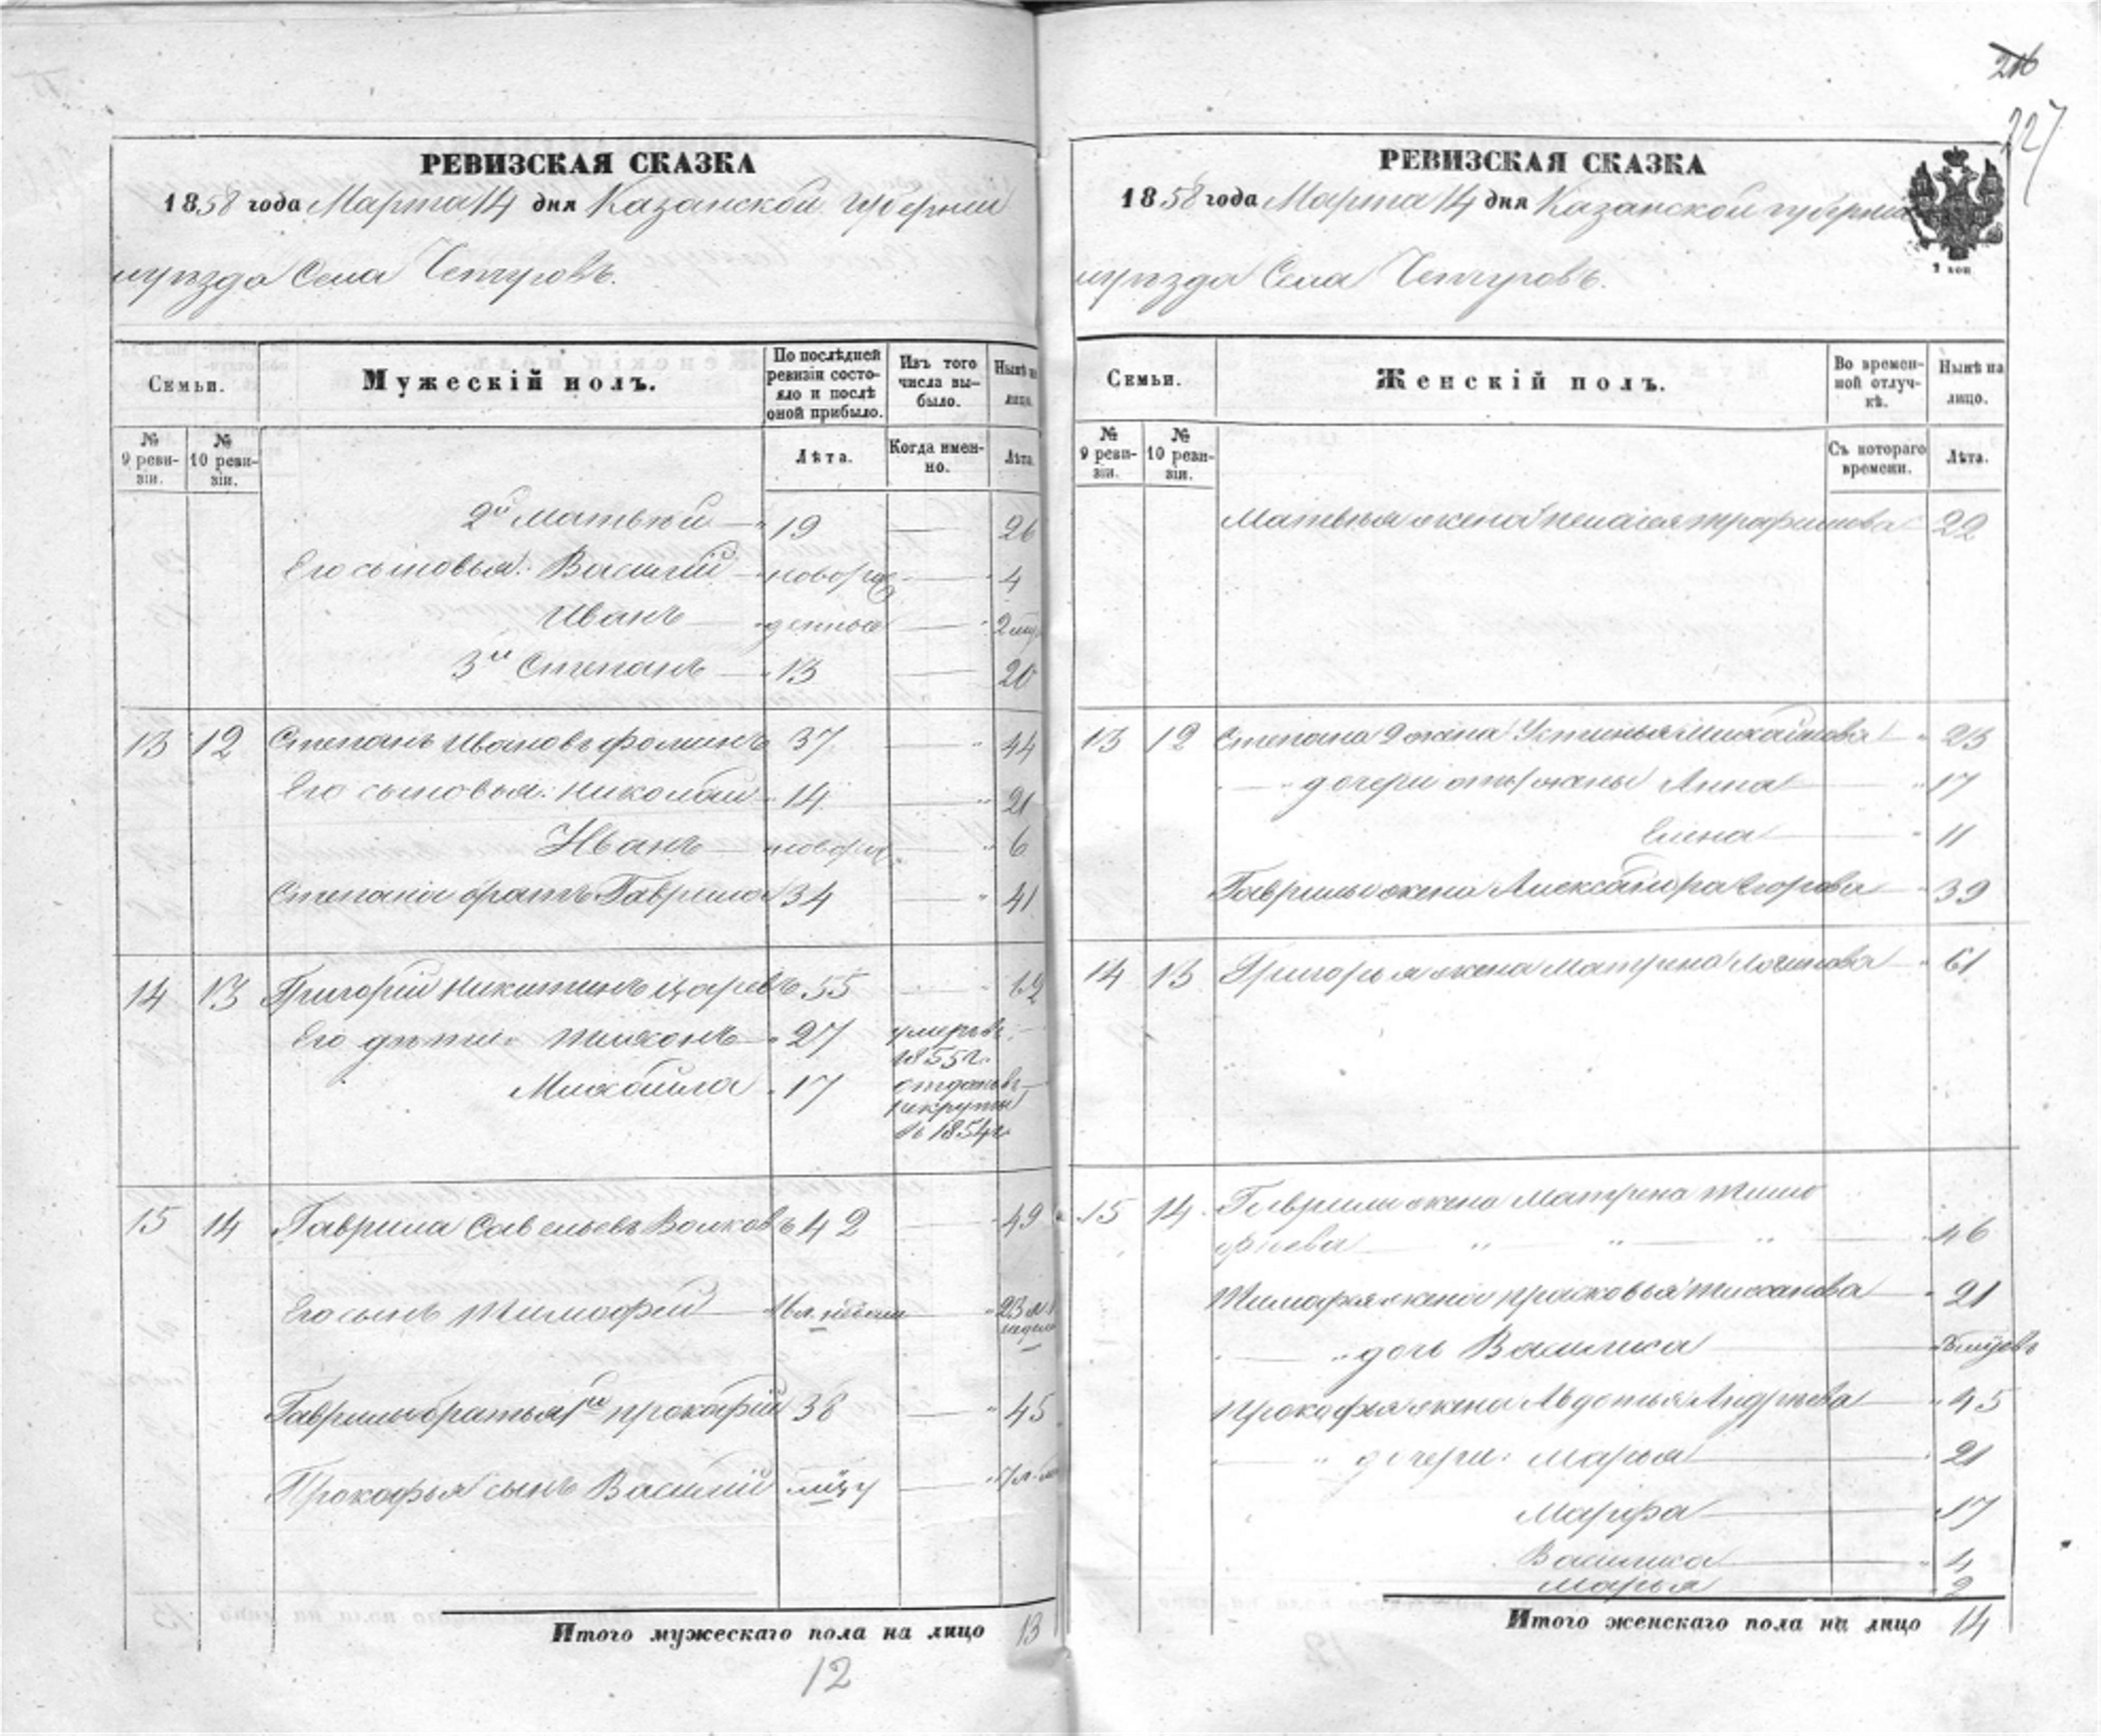 216
227
РЕВИЗСКАЯ СКАЗКА
1858 года Марта 14 дня Казанской губернии
уѣзда Села
Семьи.
Мужескій полъ.
По послѣдней ревизіи состояло и послѣ оной прибыло.
Изъ того числа выбыло.
Нынѣ на лицо.
№ 9 ревизіи.
№ 10 ревизіи.
Лѣта.
Когда именно.
Лѣта.
2й Матвѣй 19 26
Его сыновья: Василій новорож 4
Иванъ денные 2
3й Степанъ 13 20
13 12 Степанъ Ивановъ Фоминъ 37 44
Его сыновья: Николай 14 21
Иванъ новорож 6
Степана братъ Гаврила 34 41
14 13 Григорій Никитинъ Царевъ 55
Его дѣти: Тихонъ 27 умеръ въ 1855 г.
Михайла 17 отданъ въ рекруты въ 1854 г.
15 14 Гаврила Савельевъ Волковъ 42 49
Его сынъ Тимофей 16 л. 23
Гаврилы братья 1й Прокофій 38 45
Прокофья сынъ Василій
Итого мужескаго пола на лицо 13
12
РЕВИЗСКАЯ СКАЗКА
1858 года Марта 14 дня Казанской губерніи
уѣзда Села
Семьи.
Женскій полъ.
Во временной отлучкѣ.
Нынѣ на лицо.
№ 9 ревизіи.
№ 10 ревизіи.
Съ котораго времени.
Лѣта.
Матвѣя жена Пелагея Трафимова 22
13 12 Степана 2 жена Устинья Михайлова 23
дочери отъ 1 жены Анна 17
Елена 11
Гаврилы жена Александра Егорова 39
14 13 Григорья жена Матрена Логинова 61
15 14 Гаврилы жена Матрена Тимо
фѣева 46
Тимофея жена Прасковья 21
дочь Василиса
Прокофья жена Авдотья Андрѣева 45
дочери: Марья 21
Марфа 17
Василиса 4
Марья 2
Итого женскаго пола на лицо 14